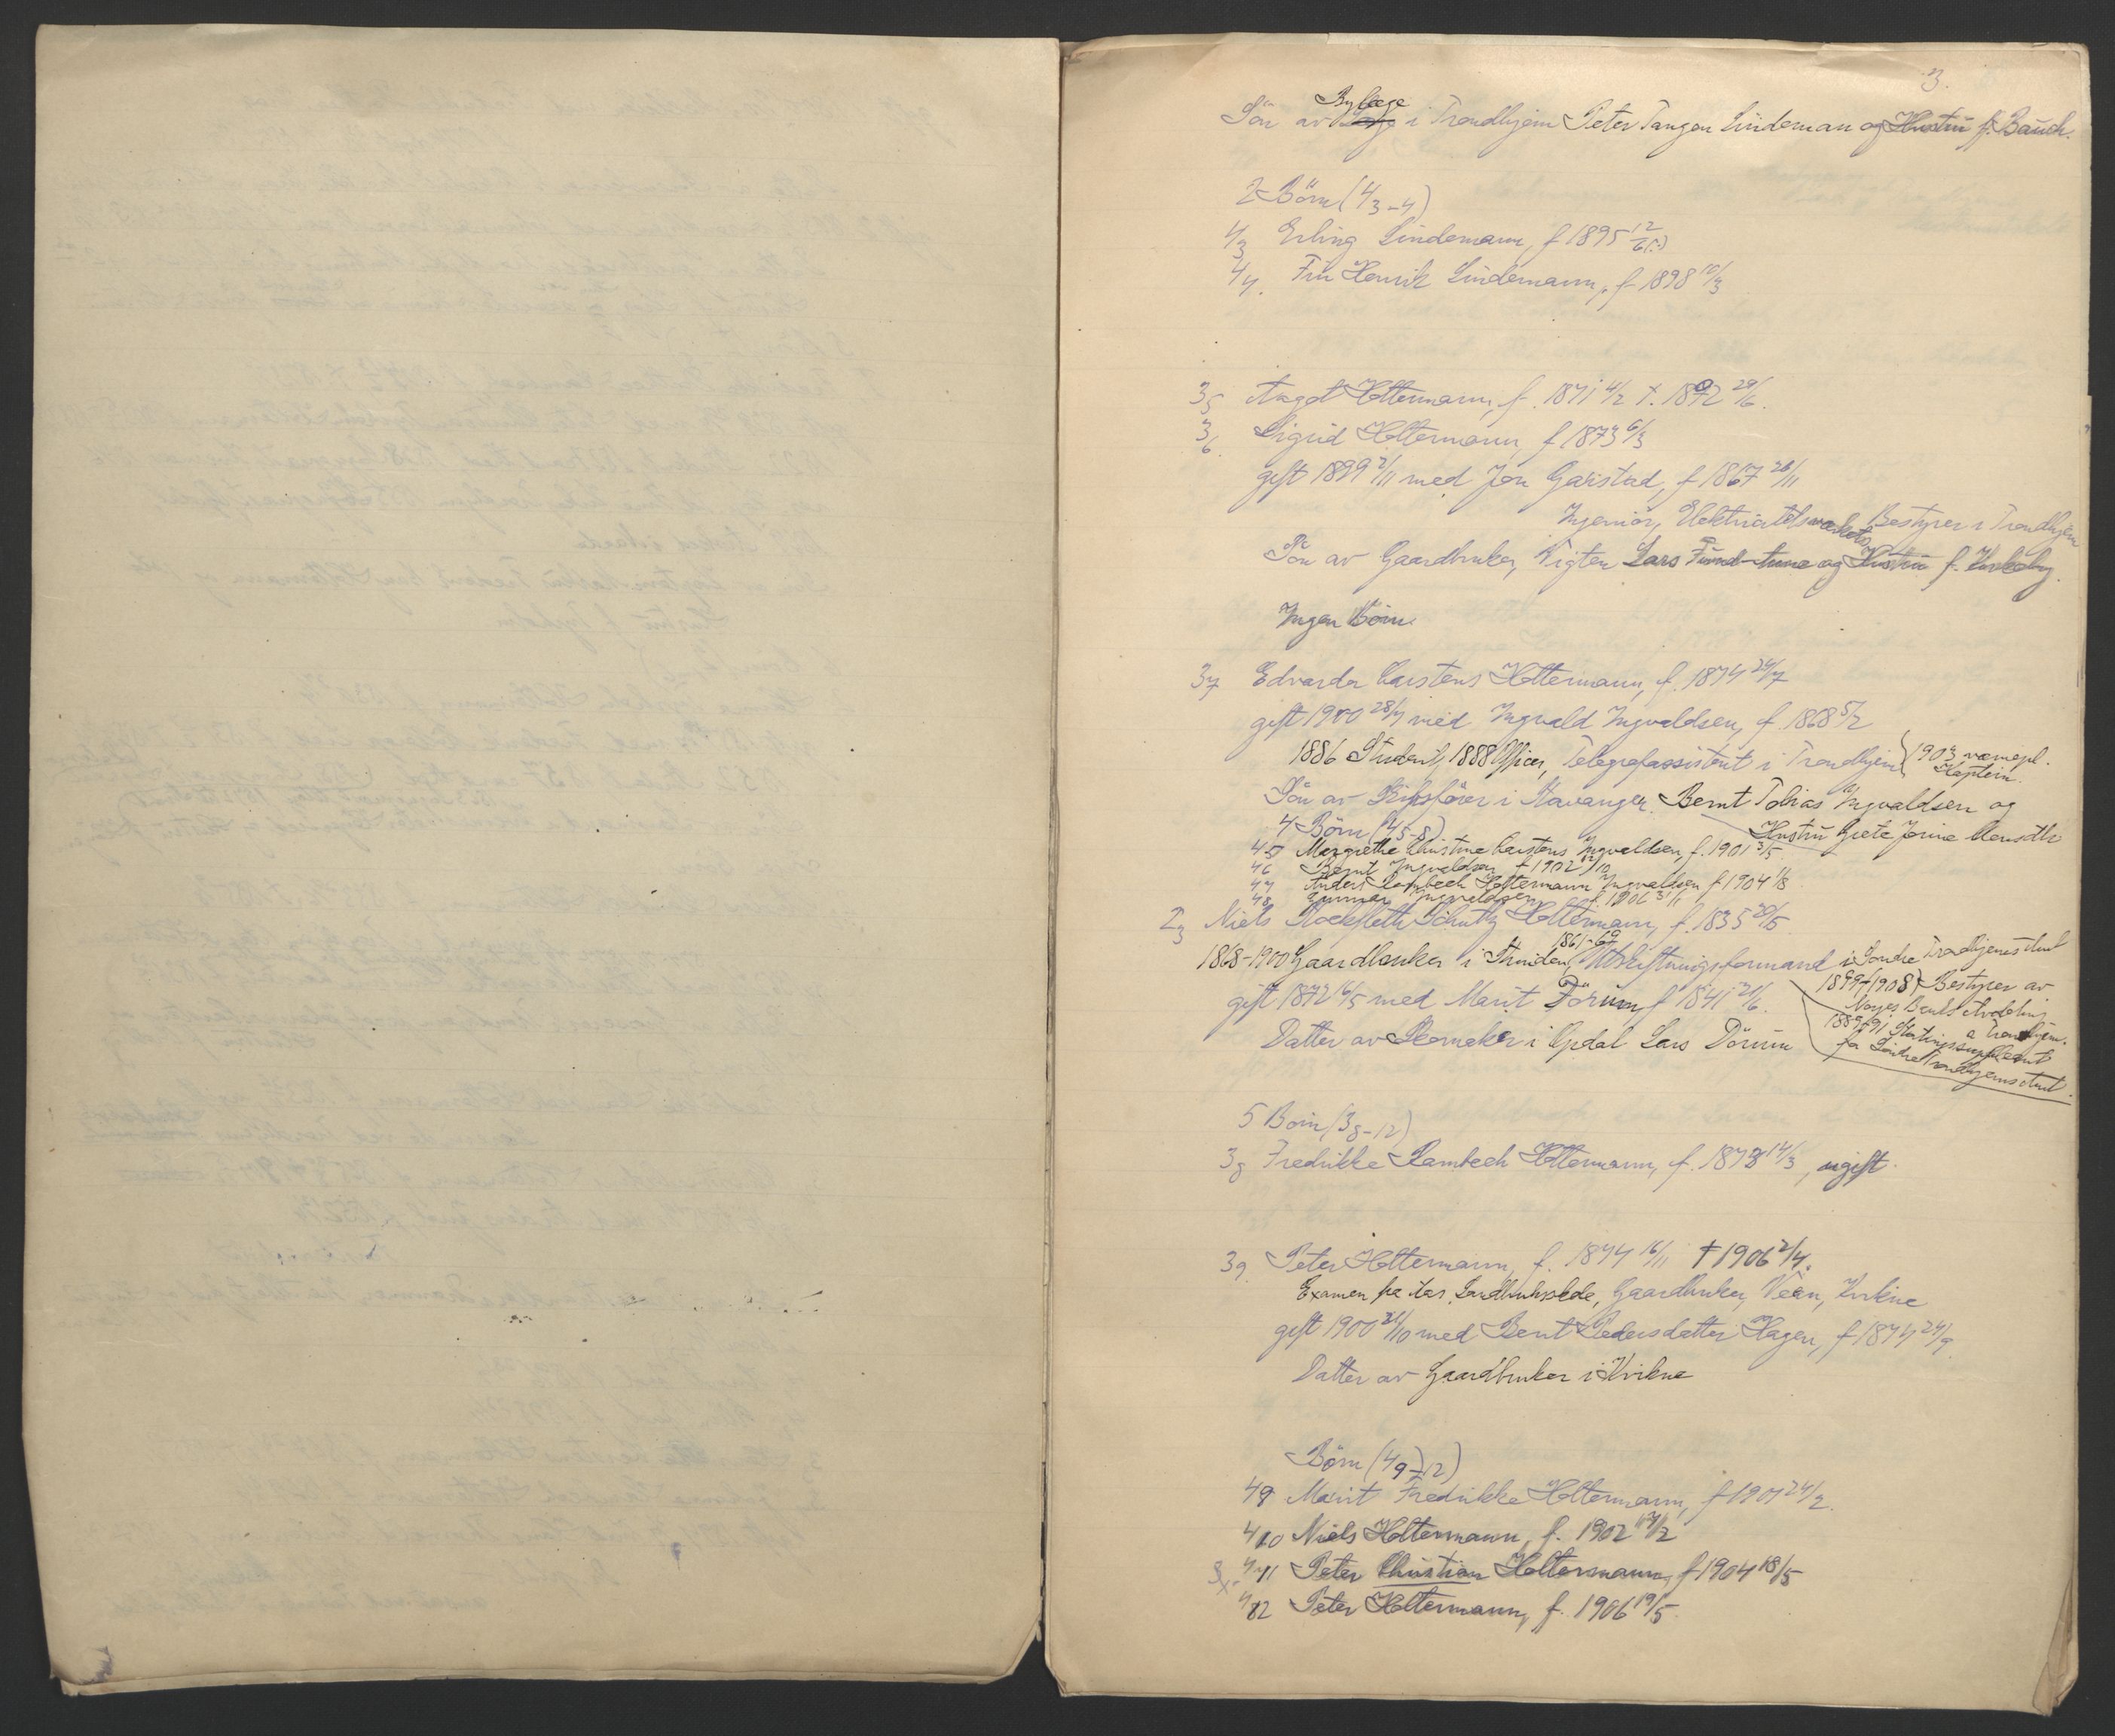 3.
Bylæge
Sön av Læge i Trondhjem Peter Tangen Lindeman og Hustru f. Bauck.
2 Börn (4 3-4)
4/3 Erling Lindemann, f 1895 12/6(?)
4/4. Fin Henrik Lindemann, f 1898 10/3
3 5 Aagot Holtermann, f. 1871 4/2 †. 1872 29/6.
3 6. Sigrid Holtermann, f 1873 6/3
gift 1899 2/11 med Jon Garistad, f 1867 26/11
Ingeniör, Elektricitetsverkets Bestyrer i Trondhjem
Sön av Gaardbruker, Vigten Lars og Hustru f.
Ingen Börn.
37 Edvarda Carstens Holtermann, f. 1874 24/7
gift 1900 28/7 med Ingvald Ingvaldsen, f. 1868 5/2
1886 Student, 1888 Officer, Telegrafassistent i Trondhjem { 1903 vernepl. Kaptein.
Sön av Skibsförer i Stavanger Bernt Tobias Ingvaldsen og
Hustru Grete Jorine Clausdtr
4 Börn (45-8)
45 Margrethe Christine Carstens Ingvaldsen, f. 1901 3/5
46 Bernt Ingvaldsen f 1902 12/10
47 Anders Rambech Holtermann Ingvaldsen f 1904 11/8
48 Gunnar Ingvaldsen f. 1906 3/11
2 3 Niels Stockfleth Schultz Holtermann, f. 1835 20/5
1861-69
1868-1900 Gaardbruker i Strinden, Utskiftningsformand i Söndre Trondhjems Amt
1899-(1908) Bestyrer av
Norges Banks Avdeling
i Trondhjem.
1889-91 Stortingssuppleant
for Söndre Trondhjems Amt.
gift 1872 16/5 med Marit Dörum f 1841 21/6.
Datter av Skomaker i Opdal Lars Dörum
5 Börn (3 8-12)
3 8 Fredrikke Rambech Holtermann, f. 1873 14/3, ugift.
39. Peter Holtermann, f. 1874 16/11 † 1906 2/4.
Examen fra Aas Landbrukskole, Gaardbruker, Veen, Kvikne
gift 1900 31/10 med Berit Pedersdatter Hagen, f 1874 24/9.
Datter av Gaardbruker i Kvikne
Börn (49-12)
49 Marit Fredrikke Holtermann, f 1901 24/2.
410 Niels Holtermann, f. 1902 17/2
411 Peter Christian Holtermann, f 1904 18/5
412 Peter Holtermann, f. 1906 19/5